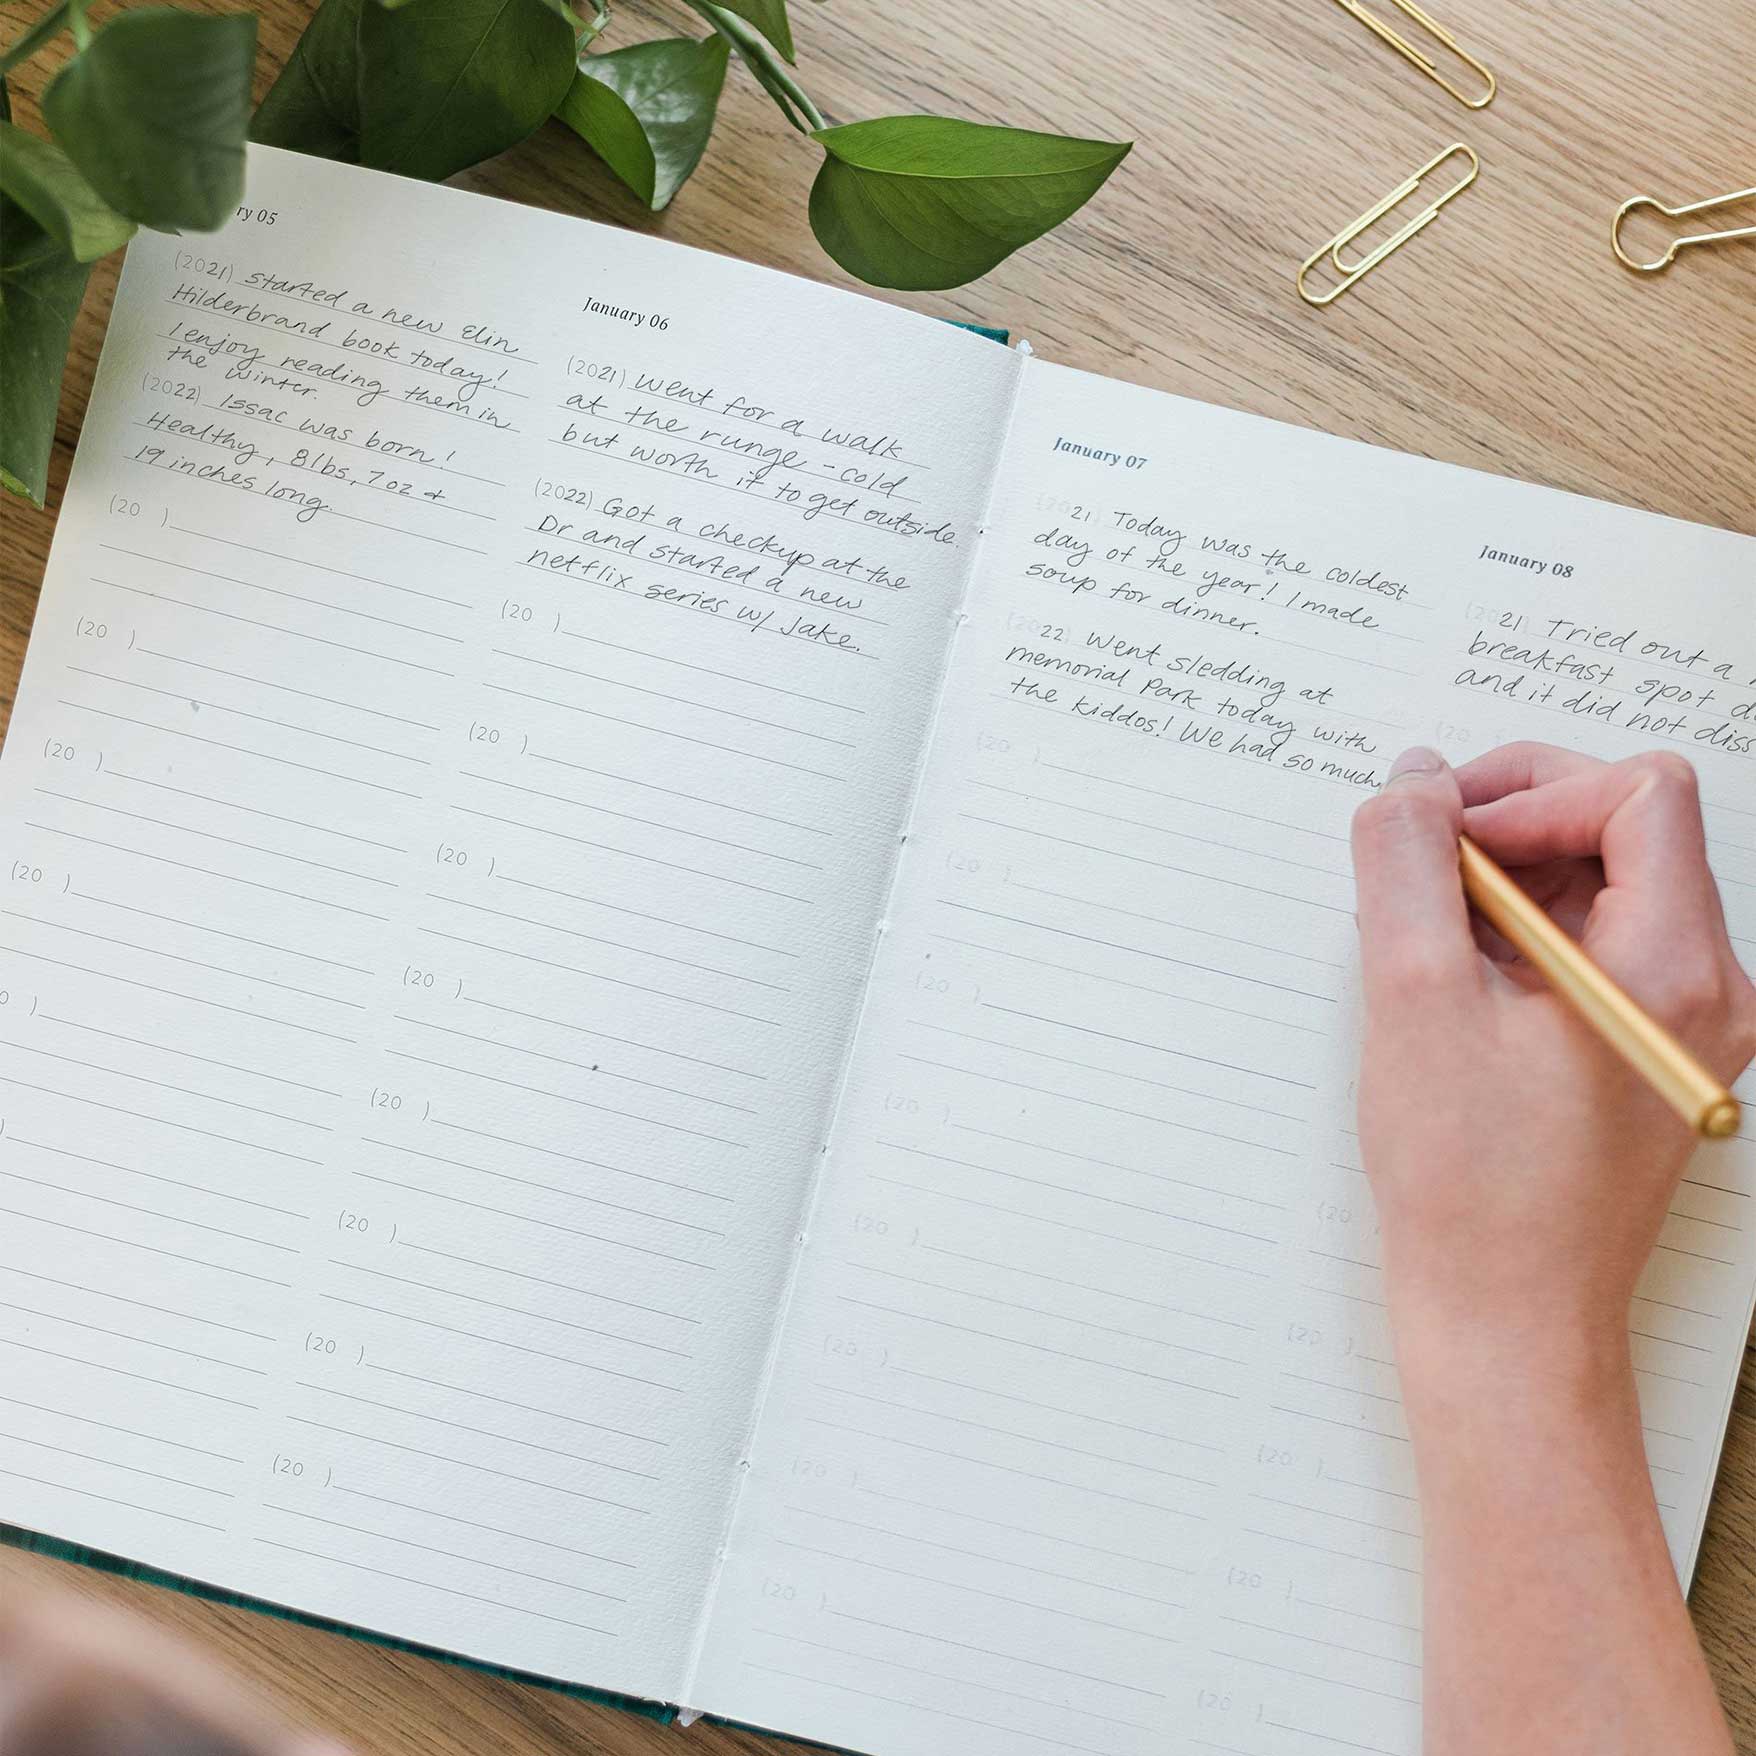 ry 05
(2021) Started a new Elin
Hilderbrand book today!
I enjoy reading them in
the winter.
(2022) Issac was born!
Healthy, 8lbs, 7oz +
19 inches long.
(20 )
(20 )
(20 )
(20 )
0 )
)
January 06
(2021) Went for a walk
at the runge - cold
but worth it to get outside.
(2022) Got a checkup at the
Dr and started a new
netflix series w/ Jake.
(20 )
(20 )
(20 )
(20 )
(20 )
(20 )
(20 )
(20 )
January 07
(2021 Today was the coldest
day of the year! I made
soup for dinner.
(2022) Went sledding at
memorial Park today with
the kiddos! We had so much
(20 )
(20 )
(20 )
(20 )
(20 )
(20 )
(20 )
(20 )
January 08
(2021 Tried out a
breakfast spot
and it did not diss
(20
(20
(20 )
(20 )
(20 )
(20 )